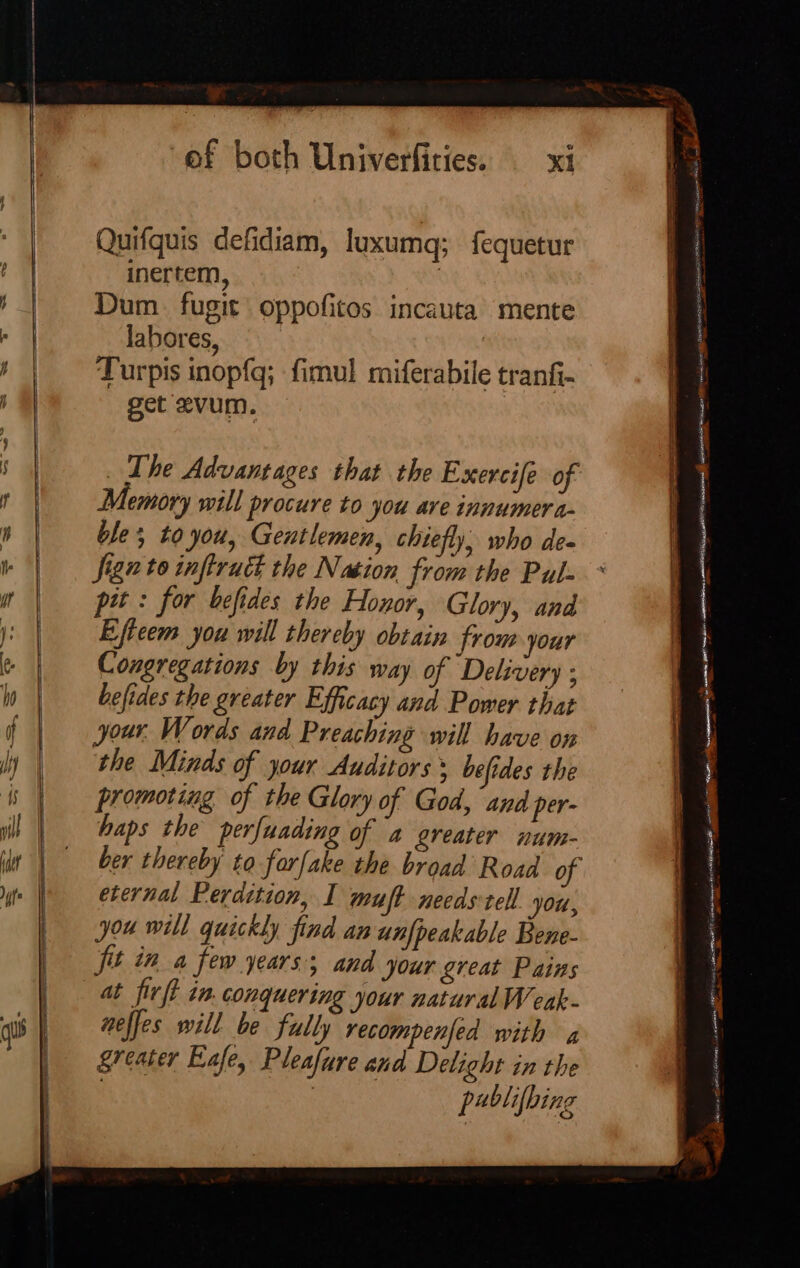 of both Univerſities. xi
Quiſquis deſidiam, luxumq; ſequetur
inertem,
Dum fugit oppoſitos incauta mente
labores,
Turpis inopſq; ſimul miſerabile tranſi-
get ævum.
The Advantages that the Exerciſe of
Memory will procure to you are innumera-
ble; to you, Gentlemen, chiefly, who de-
ſign to inſtruct the Nation from the Pul-
pit: for beſides the Honor, Glory, and
Eſteem you will thereby obtain from your
Congregations by this way of Delivery;
beſides the greater Efficacy and Power that
your Words and Preaching will have on
the Minds of your Auditors; beſides the
promoting of the Glory of God, and per-
haps the perſuading of a greater num-
ber thereby to forſake the broad Road of
eternal Perdition, I muſt needs tell you,
you will quickly find an unſpeakable Bene-
fit in a few years; and your great Pains
at firſt in conquering your natural Weak-
neſſes will be fully recompenſed with a
greater Eaſe, Pleaſure and Delight in the
publiſhing